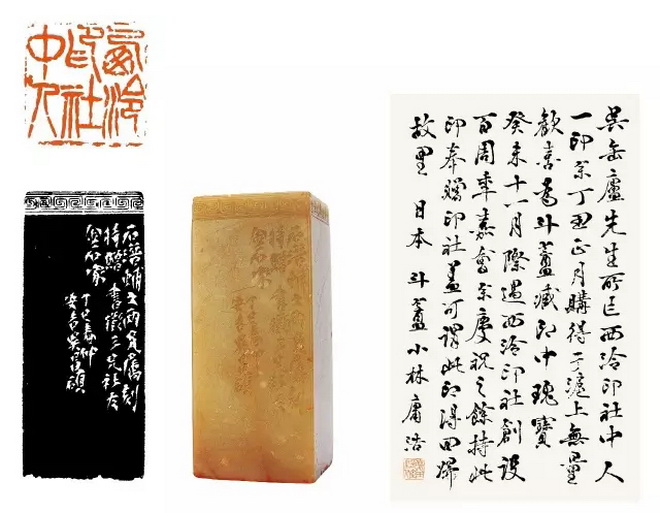 西泠
印社
中人
輔之兩兄屬刻
持贈 書徵三兄社友
丁巳春仲
安吉吳昌碩
吳缶廬先生所作西泠印社中人
一印余丁丑正月購得于滬上無量
歡喜為斗盦藏印中瑰寶
癸未十一月際遇西泠印社創設
百周年嘉會余慶祝之餘持此
印奉贈印社蓋可謂此印得回歸
故里 日本 斗盦小林庸浩